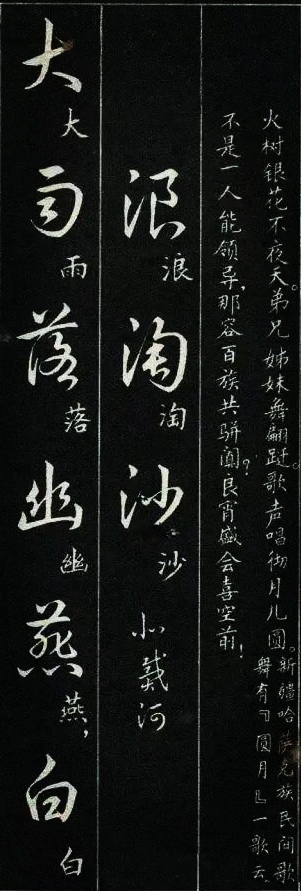 火树银花不夜天。弟兄姊妹舞翩跹。歌声唱彻月儿圆。
新疆哈萨克族民间歌
舞有『圆月』一歌云
不是一人能领导，那容百族共骈阗？良宵盛会喜空前！
浪 浪 淘 淘 沙 沙 北戴河
大 大 雨 雨 落 落 幽 幽 燕 燕， 白 白